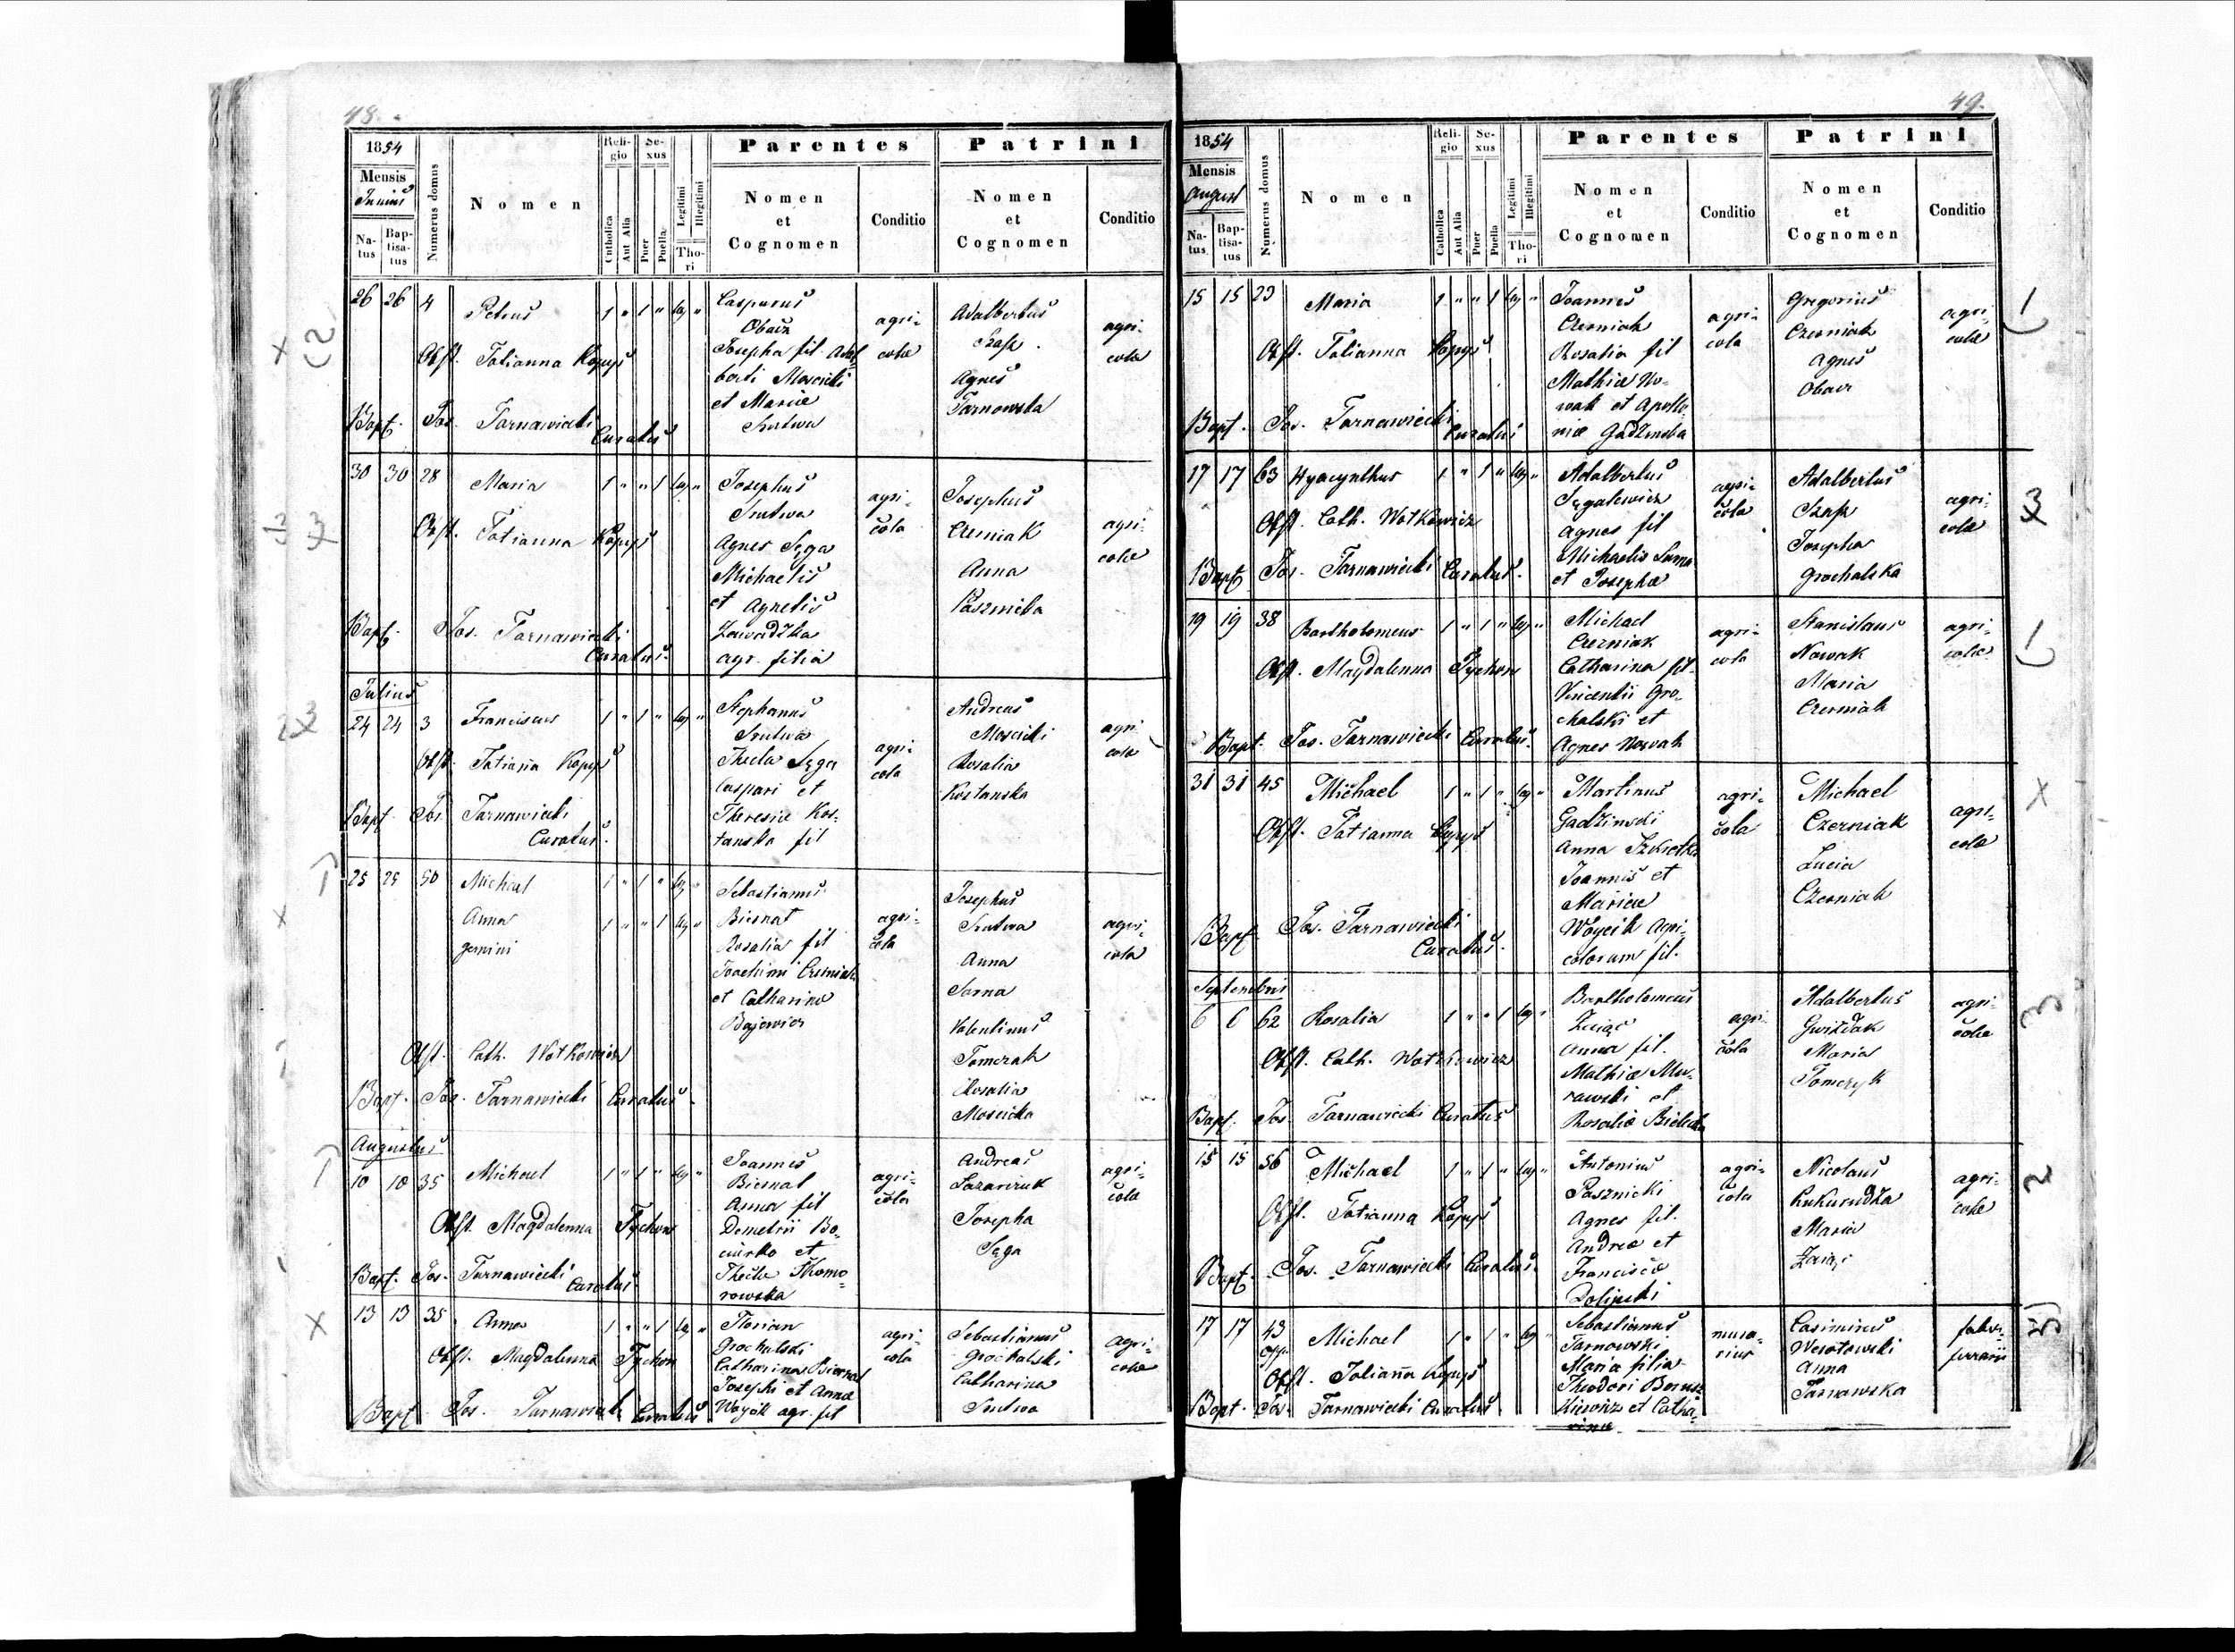 48.
1854
Mensis
Junius
Natus
Baptisatus
Numerus domus
Nomen
Religio
Catholica
Aut Alia
Sexus
Puer
Puella
Legitimi
Illegitimi
Thori
Parentes
Nomen
et
Cognomen
Conditio
Patrini
Nomen
et
Cognomen
Conditio
26 26 4 Petrus 1 " 1 " leg "
Obst. Tatianna Kopyś
Bapt. Jos. Tarnawiecki
Curatus
Casparus
Obacz
Josepha fil. Adal
berti Moscicki
et Mariæ
Srutwa
agri-
colæ
Adalbertus
Szafz
Agnes
Tarnowska
agri-
colæ
30 30 28 Maria 1 " " 1 leg "
Obst. Tatianna Kopyś
Bapt. Jos. Tarnawiecki
Curatus.
Josephus
Srutwa
Agnes Sęga
Michaelis
et Agnetis
Zawadzka
agr. filia
agri-
cola
Josephus
Czerniak
Anna
Pasznicka
agri-
colæ
Julius
24 24 3 Franciscus 1 " 1 " leg "
Obst. Tatiana Kopyś
Bapt Jos. Tarnawiecki
Curatus.
Stephanus
Srutwa
Thecla Sęga
Caspari et
Theresiæ Kos-
tanska fil
agri-
cola
Andreas
Moscicki
Rosalia
Kostanska
agri
colæ
25 25 50 Michael 1 " 1 " leg "
Anna 1 " " 1 leg "
gemini
Obst. Cath. Wotkowicz
Bapt. Jos. Tarnawiecki Curatus.
Sebastianus
Biernat
Rosalia fil
Joachimi Czerniak
et Catharina
Bajowicz
agri-
cola
Josephus
Srutwa
Anna
Sarna
Valentinus
Tomczak
Rosalia
Moscicka
agri-
colæ
Augustus
10 10 35 Michael 1 " 1 " leg "
Obst. Magdalenna Tychon
Bapt. Jos. Tarnawiecki
Curatus.
Joannes
Biernat
Anna fil
Demetrii Bo-
et
Thecla Thomo-
rowska
agri-
cola
Andreas
Lazarczuk
Josepha
Sęga
agri-
colæ
13 13 35 Anna 1 " " 1 leg "
Obst. Magdalenna Tychon
Bapt Jos. Tarnawiecki Curatus
Florian
Grochalski
Catharina Biernat
Josephi et Annæ
Woycik agr. fil
agri
cola
Sebastianus
Grochalski
Catharina
Srutwa
agri-
colæ
49.
1854
Mensis
August
Natus
Baptisatus
Numerus domus
Nomen
Religio
Catholica
Aut Alia
Sexus
Puer
Puella
Legitimi
Illegitimi
Thori
Parentes
Nomen
et
Cognomen
Conditio
Patrini
Nomen
et
Cognomen
Conditio
15 15 23 Maria 1 " " 1 leg "
Obst. Tatianna Kopyś
Bapt. Jos. Tarnawiecki
Curatus
Joannes
Czerniak
Rosalia fil
Mathiæ No-
wak et Apollo-
niæ Gadzinska
agri-
cola
Gregorius
Czerniak
Agnes
Obacz
agri-
colæ
17 17 63 Hyacynthus 1 " 1 " leg "
Obst. Cath. Wotkowicz
Bapt Jos. Tarnawiecki Curatus.
Adalbertus
Sęgalewicz
Agnes fil
Michaelis Sarna
et Josephæ
agri-
cola
Adalbertus
Szafz
Josepha
Grochalska
agri-
colæ
19 19 38 Bartholomeus 1 " 1 " leg "
Obst. Magdalenna Tychon
Bapt. Jos. Tarnawiecki Curatus.
Michael
Czerniak
Catharina fil-
Vincentii Gro-
chalski et
Agnes Nowak
agri-
cola
Stanislaus
Nowak
Maria
Czerniak
agri-
colæ
31 31 45 Michael 1 " 1 " leg "
Obst. Tatianna Kopyś
Bapt Jos. Tarnawiecki
Curatus.
Martinus
Gadzinski
Anna
Joannis et
Mariæ
Woycik Agri-
colarum fil.
agri-
cola
Michael
Czerniak
Lucia
Czerniak
agri-
colæ
Septembris
6 6 62 Rosalia 1 " " 1 leg "
Obst. Cath. Wotkowicz
Bapt. Jos. Tarnawiecki Curatus
Bartholomeus
Zając
Anna fil.
Mathiæ Mu-
rawski et
Rosaliæ Bielecka
agri-
cola
Adalbertus
Gwiżdak
Maria
Tomczyk
agri-
colæ
15 15 56 Michael 1 " 1 " leg "
Obst. Tatianna Kopyś
Bapt. Jos. Tarnawiecki Curatus.
Antonius
Pasznicki
Agnes fil.
Andreæ et
Franciscæ
Dolipski
agri-
cola
Nicolaus
Kukurudza
Maria
Zając
agri-
colæ
17 17 43 Michael 1 " 1 " leg "
opp.
Obst. Tatianna Kopyś
Bapt. Jos. Tarnawiecki Curatus.
Sebastianus
Tarnowski
Maria filia
Theodori Borusz
kiewicz et Catha-
rinæ
mura-
rius
Casimirus
Anna
Tarnawska
fabri-
ferrarii